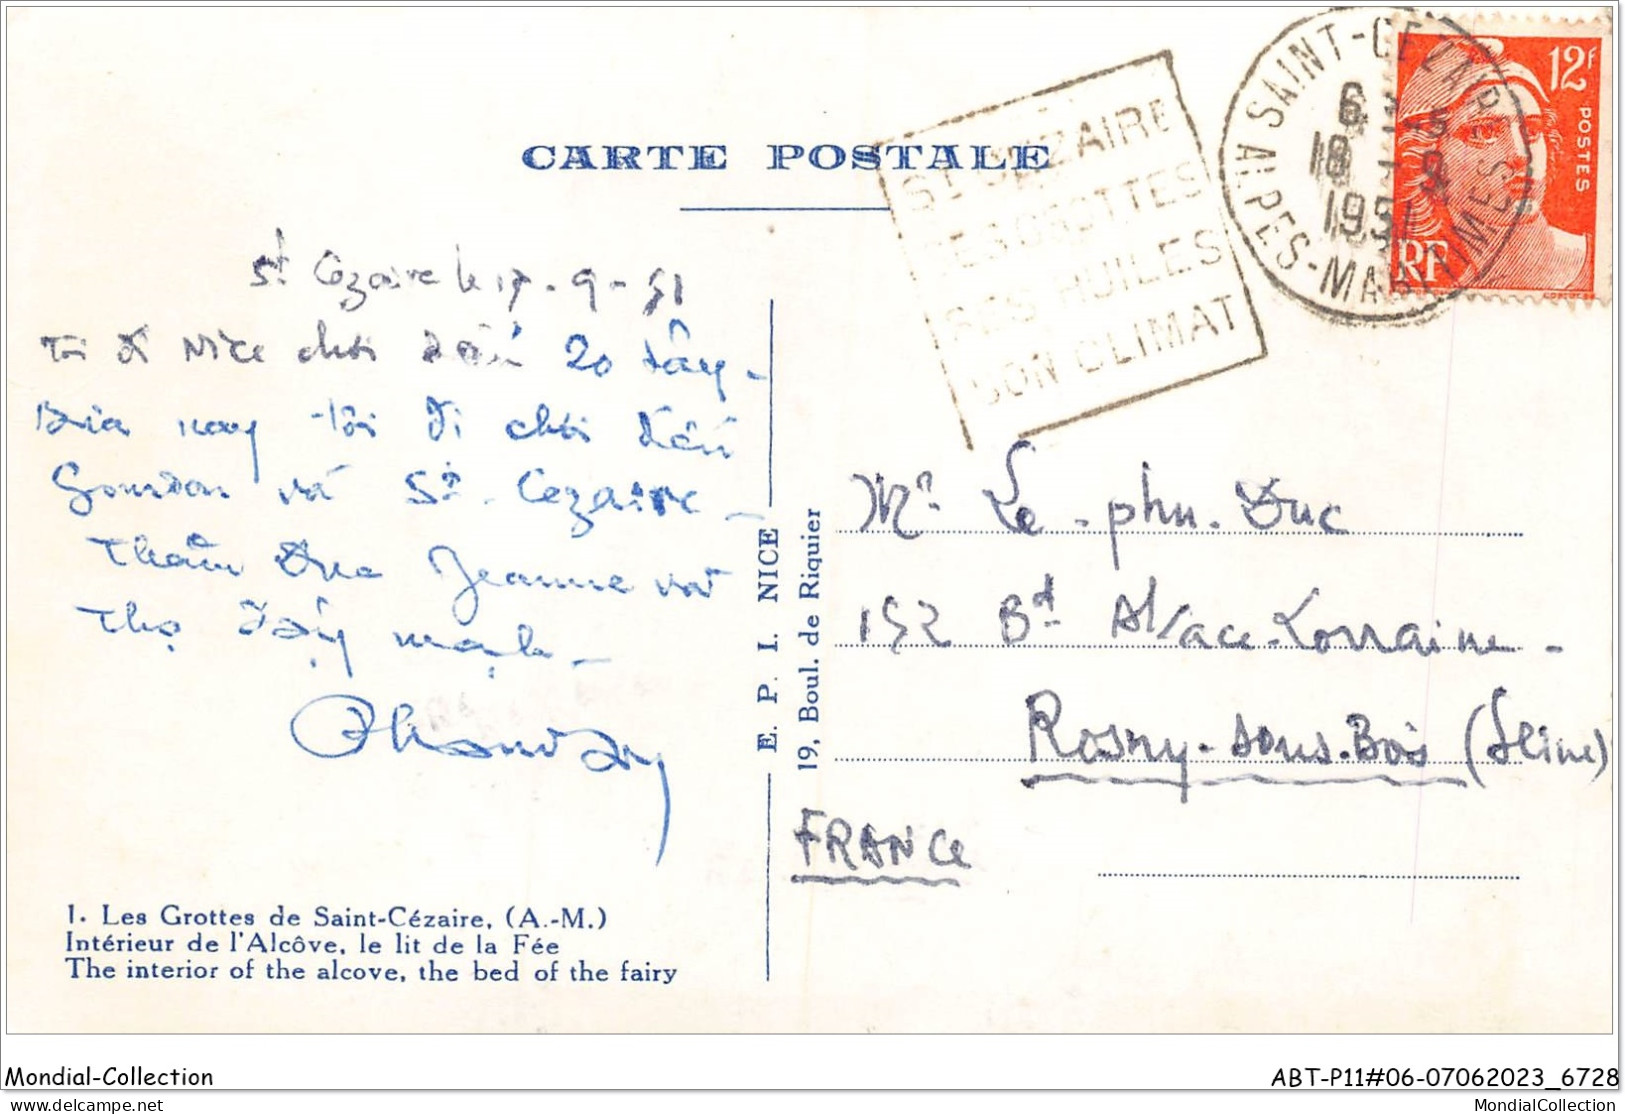 CARTE POSTALE
ST CEZAIRE
SES GROTTES
SES HUILES
SON CLIMAT
SAINT-CEZAIRE
ALPES-MARITIMES
18 - 9
1951
12f
POSTES
RF
St Cezaire le 17-9-51
Tôi ở Nice chơi đến 20 tây -
Bữa nay tôi đi chơi đến
Gourdon và St. Cezaire -
Thăm Duc Jeanne với
Thọ đặng mạnh -
1. Les Grottes de Saint-Cézaire, (A.-M.)
Intérieur de l'Alcôve, le lit de la Fée
The interior of the alcove, the bed of the fairy
E. P. I. NICE
19, Boul. de Riquier
Mr. Le - phu - Duc
152 Bd Alsace-Lorraine -
Rosny-sous-Bois (Seine)
FRANCE
Mondial-Collection
ABT-P11#06-07062023_6728
delcampe.net
MondialCollection